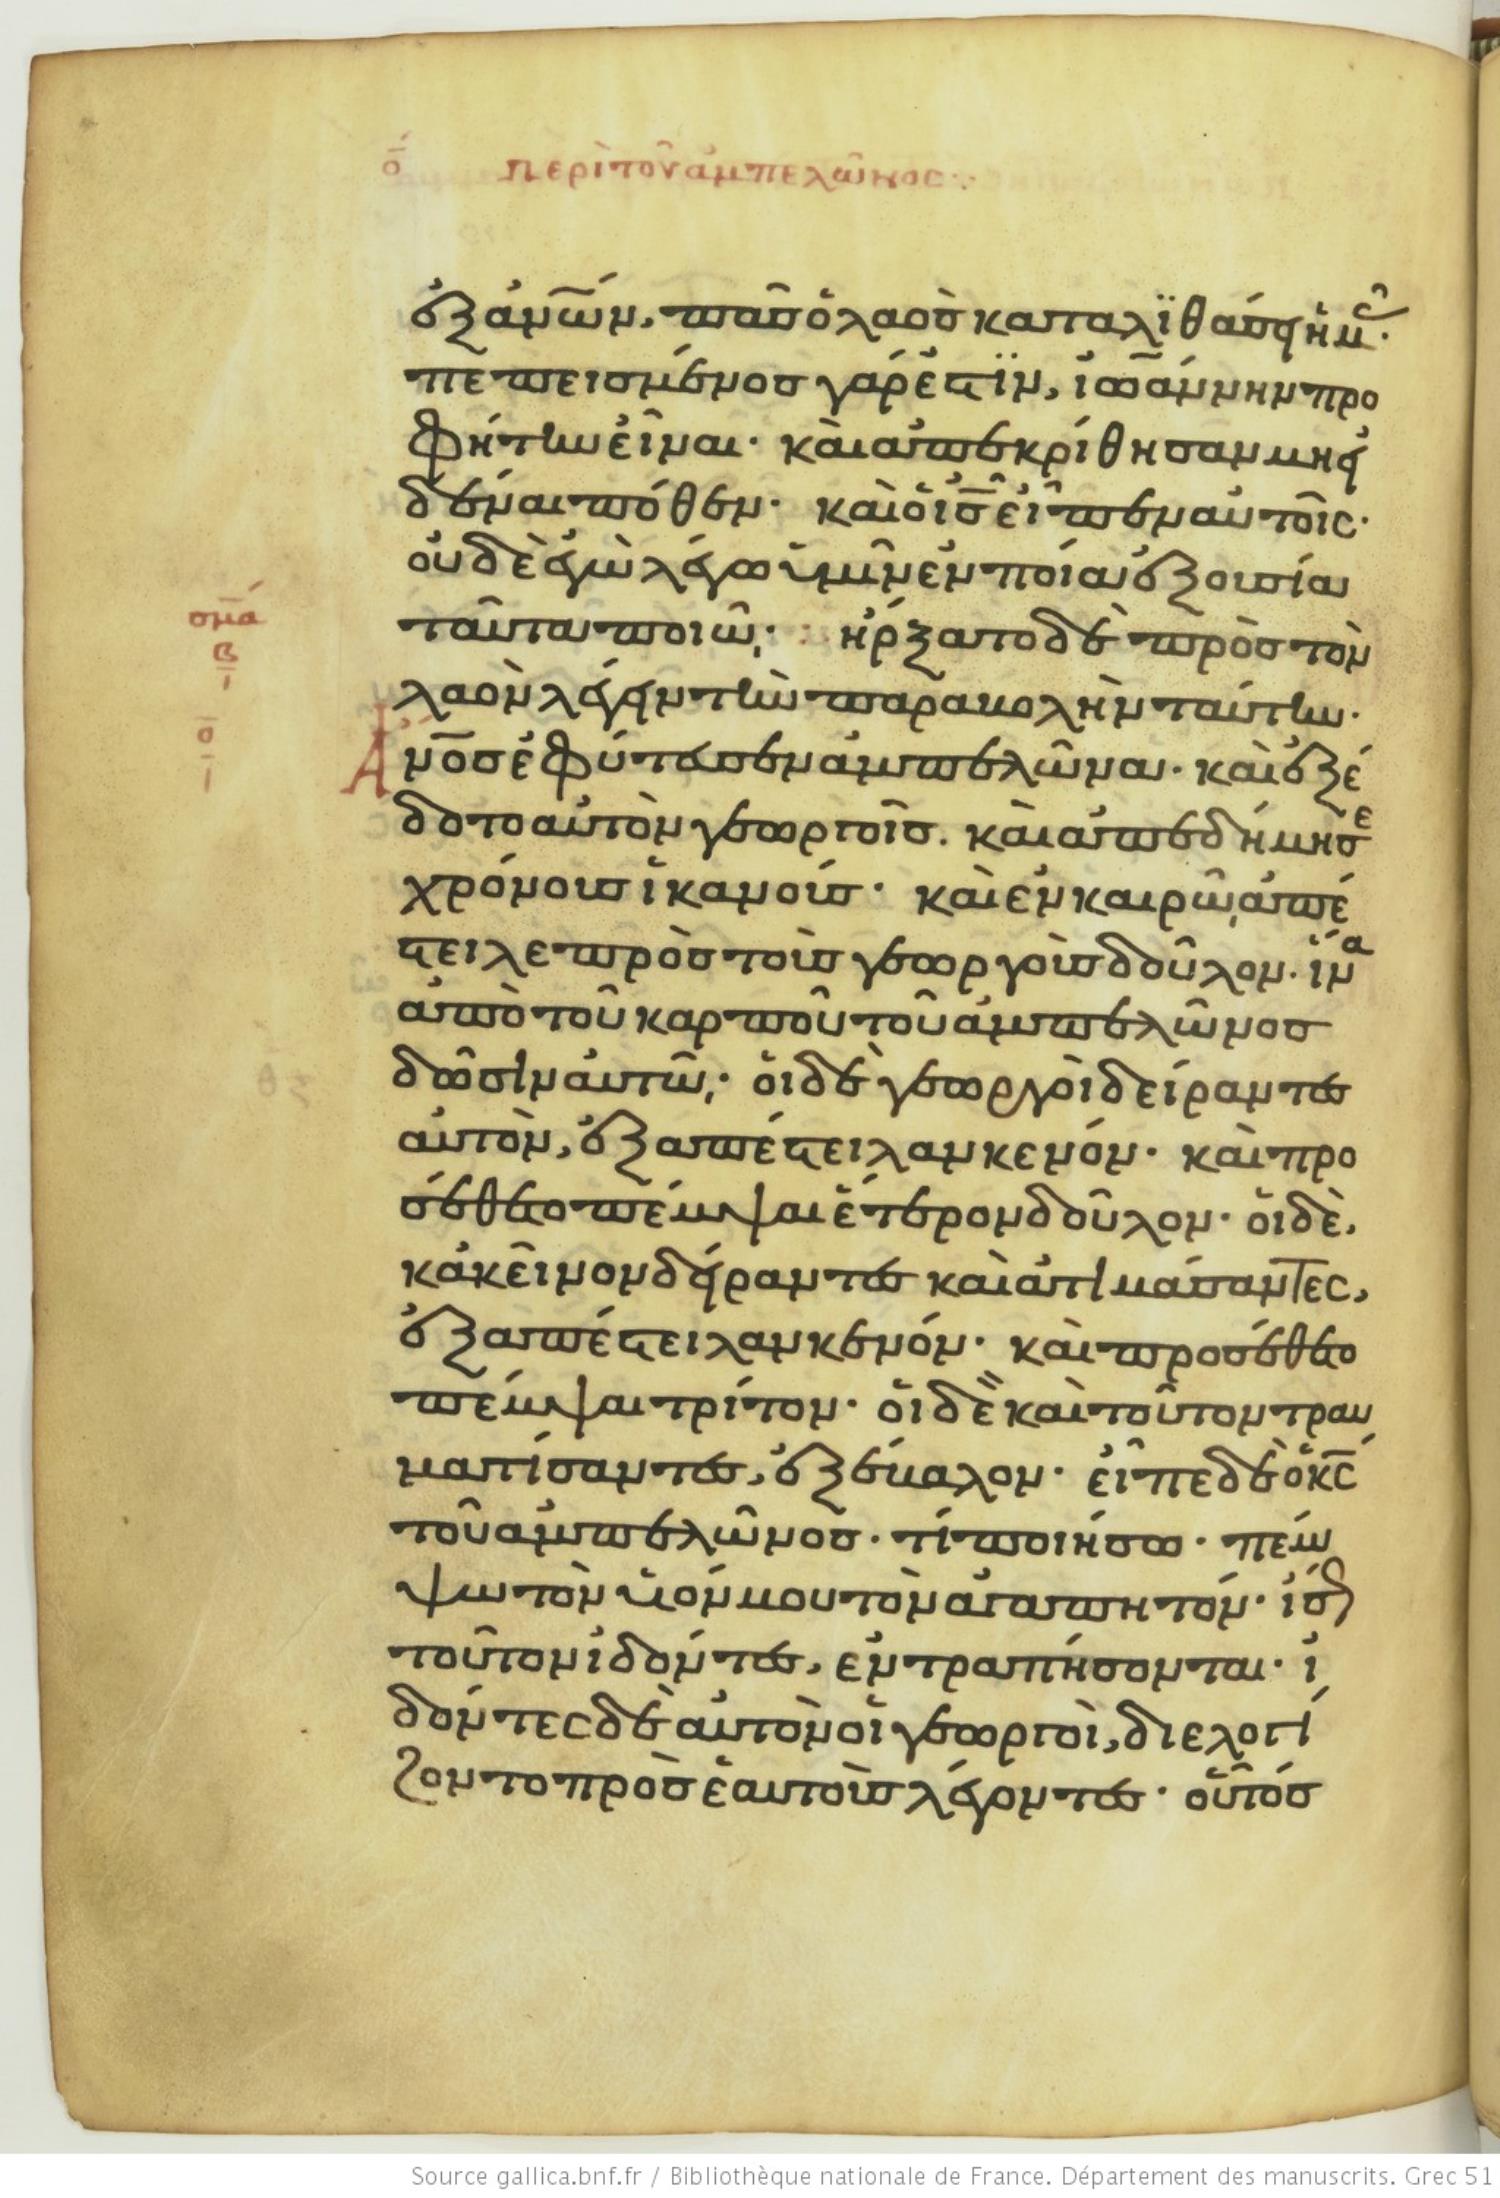 ο̄ περὶ τοῦ ἀμπελῶνος
ἐξ ἀν̅ων, πᾶσ ὁ λαὸσ καταλϊθάσει ἡμᾶς·
πεπεισμένοσ γάρ ἐστϊν, ἰωάννην προ
φήτην εἶναι· καὶ ἀπεκρίθησαν μὴ εἰ
δέναι πόθεν· καὶ ὁ ισ̅ εἶπεν αὐτοῖς·
οὐδὲ ἐγὼ λέγω ὑμῖν ἐν ποία ἐξουσία
ταῦτα ποιῶ· ἤρξατο δὲ πρὸσ τὸν
λαὸν λέγειν τὴν παραβολὴν ταύτην·
σμα
β
σ
Ανοσ̅ ἐφύτευσεν ἀμπελῶνα· καὶ ἐξέ
δοτο αὐτὸν γεωργοῖσ. καὶ ἀπεδήμησε
χρόνουσ ἱκανούσ· καὶ ἐν καιρῶ, ἀπέ
στειλε πρὸσ τοὺσ γεωργοὺσ δοῦλον· ἵνα
ἀπὸ τοῦ καρποῦ τοῦ ἀμπελῶνοσ
δῶσιν αὐτῶ· οἱ δὲ γεωργοὶ δείραντεσ
αὐτὸν, ἐξαπέστειλαν κενόν· καὶ προ
σέθετο πέμψαι ἕτερον δοῦλον· οἱ δὲ,
κἀκεῖνον δείραντεσ καὶ ἀτιμάσαντες,
ἐξαπέστειλαν κενόν· καὶ προσέθετο
πέμψαι τρίτον· οἱ δὲ καὶ τοῦτον τραυ
ματίσαντεσ, ἐξέβαλον· εἶπε δὲ ὁ κς̅
τοῦ ἀμπελῶνοσ· τί ποιήσω· πέμ
ψω τὸν υἱόν μου τὸν ἀγαπητόν· ἴσως
τοῦτον ἰδόντεσ, ἐντραπήσονται· ἰ
δόντες δὲ αὐτὸν οἱ γεωργοὶ, διελογί
ζοντο πρὸσ ἑαυτοὺσ λέγοντεσ· οὗτόσ
Source gallica.bnf.fr / Bibliothèque nationale de France. Département des manuscrits. Grec 51